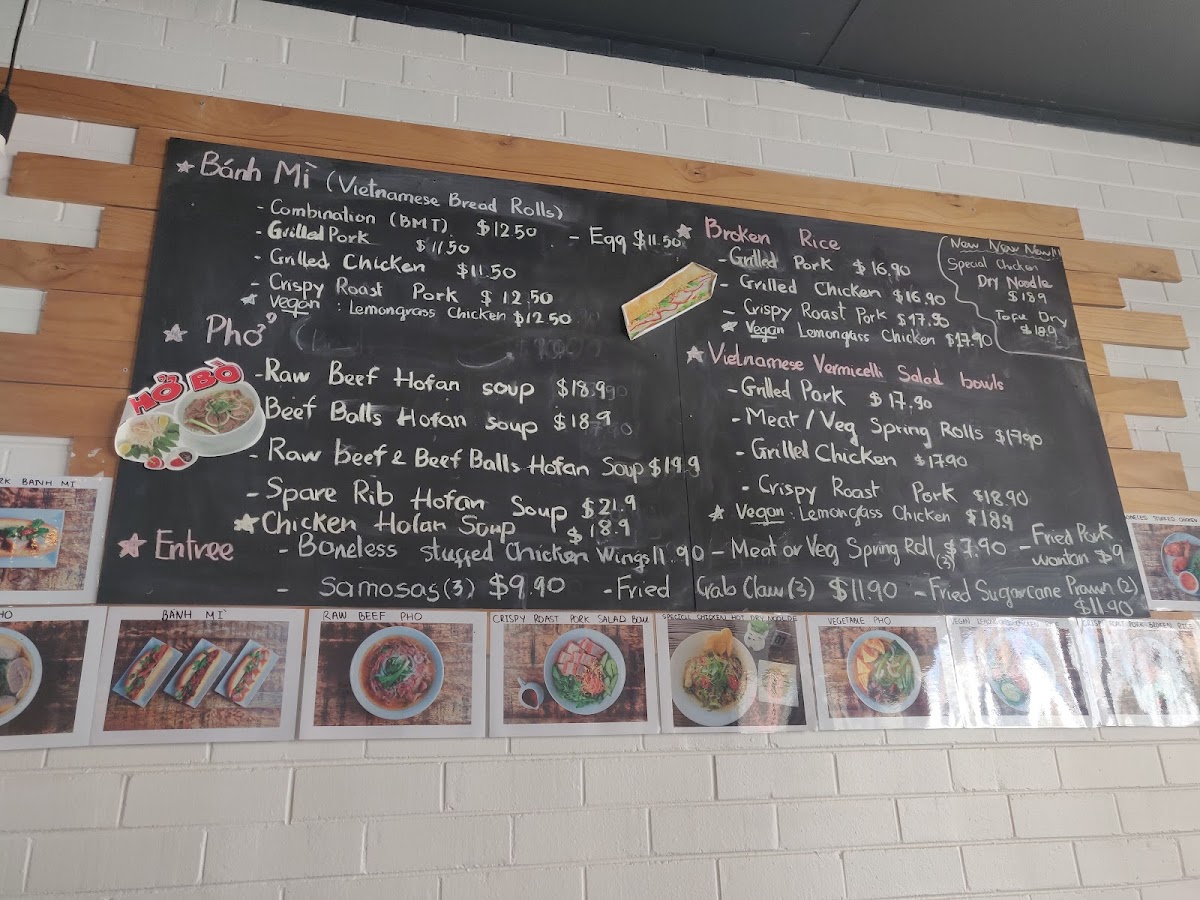 ★ Bánh Mì (Vietnamese Bread Rolls)
- Combination (BMT) $12.50
- Grilled Pork $11.50
- Egg $11.50
- Grilled Chicken $11.50
- Crispy Roast Pork $12.50
★ Vegan : Lemongrass Chicken $12.50
★ Phở
HỞ BÒ
- Raw Beef Hofan soup $18.9
Beef Balls Hofan soup $18.9
- Raw beef & Beef Balls Hofan Soup $19.9
- Spare Rib Hofan Soup $21.9
★ Chicken Hofan Soup $18.9
★ Broken Rice
- Grilled Pork $16.90
- Grilled Chicken $16.90
- Crispy Roast Pork $17.90
★ Vegan Lemongrass Chicken $17.90
New New New!!!
Special Chicken
Dry Noodle
$18.9
Tofu Dry
$18.9
★ Vietnamese Vermicelli Salad bowls
- Grilled Pork $17.90
- Meat / Veg Spring Rolls $17.90
- Grilled Chicken $17.90
- Crispy Roast Pork $18.90
★ Vegan : Lemongrass Chicken $18.9
★ Entree
- Boneless stuffed Chicken Wings 11.90
- Meat or Veg Spring Roll (3) $7.90
- Fried Pork wontan $9
- Samosas (3) $9.90
- Fried Crab Claw (3) $11.90
- Fried Sugarcane Prawn (2) $11.90
RK BANH MI
BANH MÌ
RAW BEEF PHO
CRISPY ROAST PORK SALAD BOWL
SPECIAL CHICKEN HOT DRY NOODLE
VEGETABLE PHO